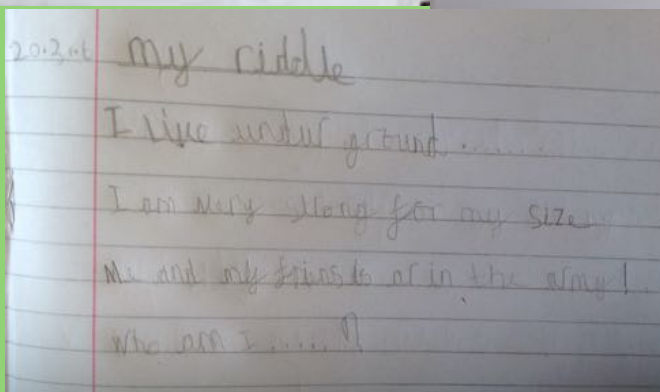 my riddle
I live under ground ........
I am very strong for my size
Me and my frinsds ar in the army!
Who am I ..... ?